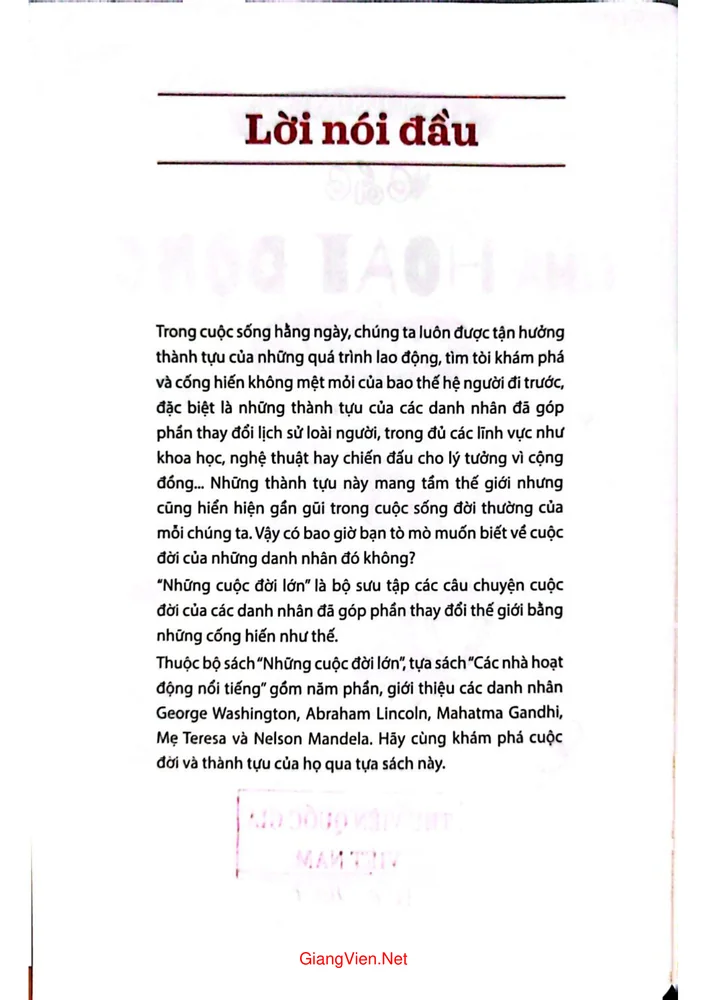 Lời nói đầu
Trong cuộc sống hằng ngày, chúng ta luôn được tận hưởng
thành tựu của những quá trình lao động, tìm tòi khám phá
và cống hiến không mệt mỏi của bao thế hệ người đi trước,
đặc biệt là những thành tựu của các danh nhân đã góp
phần thay đổi lịch sử loài người, trong đủ các lĩnh vực như
khoa học, nghệ thuật hay chiến đấu cho lý tưởng vì cộng
đồng... Những thành tựu này mang tầm thế giới nhưng
cũng hiển hiện gần gũi trong cuộc sống đời thường của
mỗi chúng ta. Vậy có bao giờ bạn tò mò muốn biết về cuộc
đời của những danh nhân đó không?
“Những cuộc đời lớn” là bộ sưu tập các câu chuyện cuộc
đời của các danh nhân đã góp phần thay đổi thế giới bằng
những cống hiến như thế.
Thuộc bộ sách “Những cuộc đời lớn”, tựa sách “Các nhà hoạt
động nổi tiếng” gồm năm phần, giới thiệu các danh nhân
George Washington, Abraham Lincoln, Mahatma Gandhi,
Mẹ Teresa và Nelson Mandela. Hãy cùng khám phá cuộc
đời và thành tựu của họ qua tựa sách này.
VIỆN QUỐC GIA
VIỆT NAM
GiangVien.Net